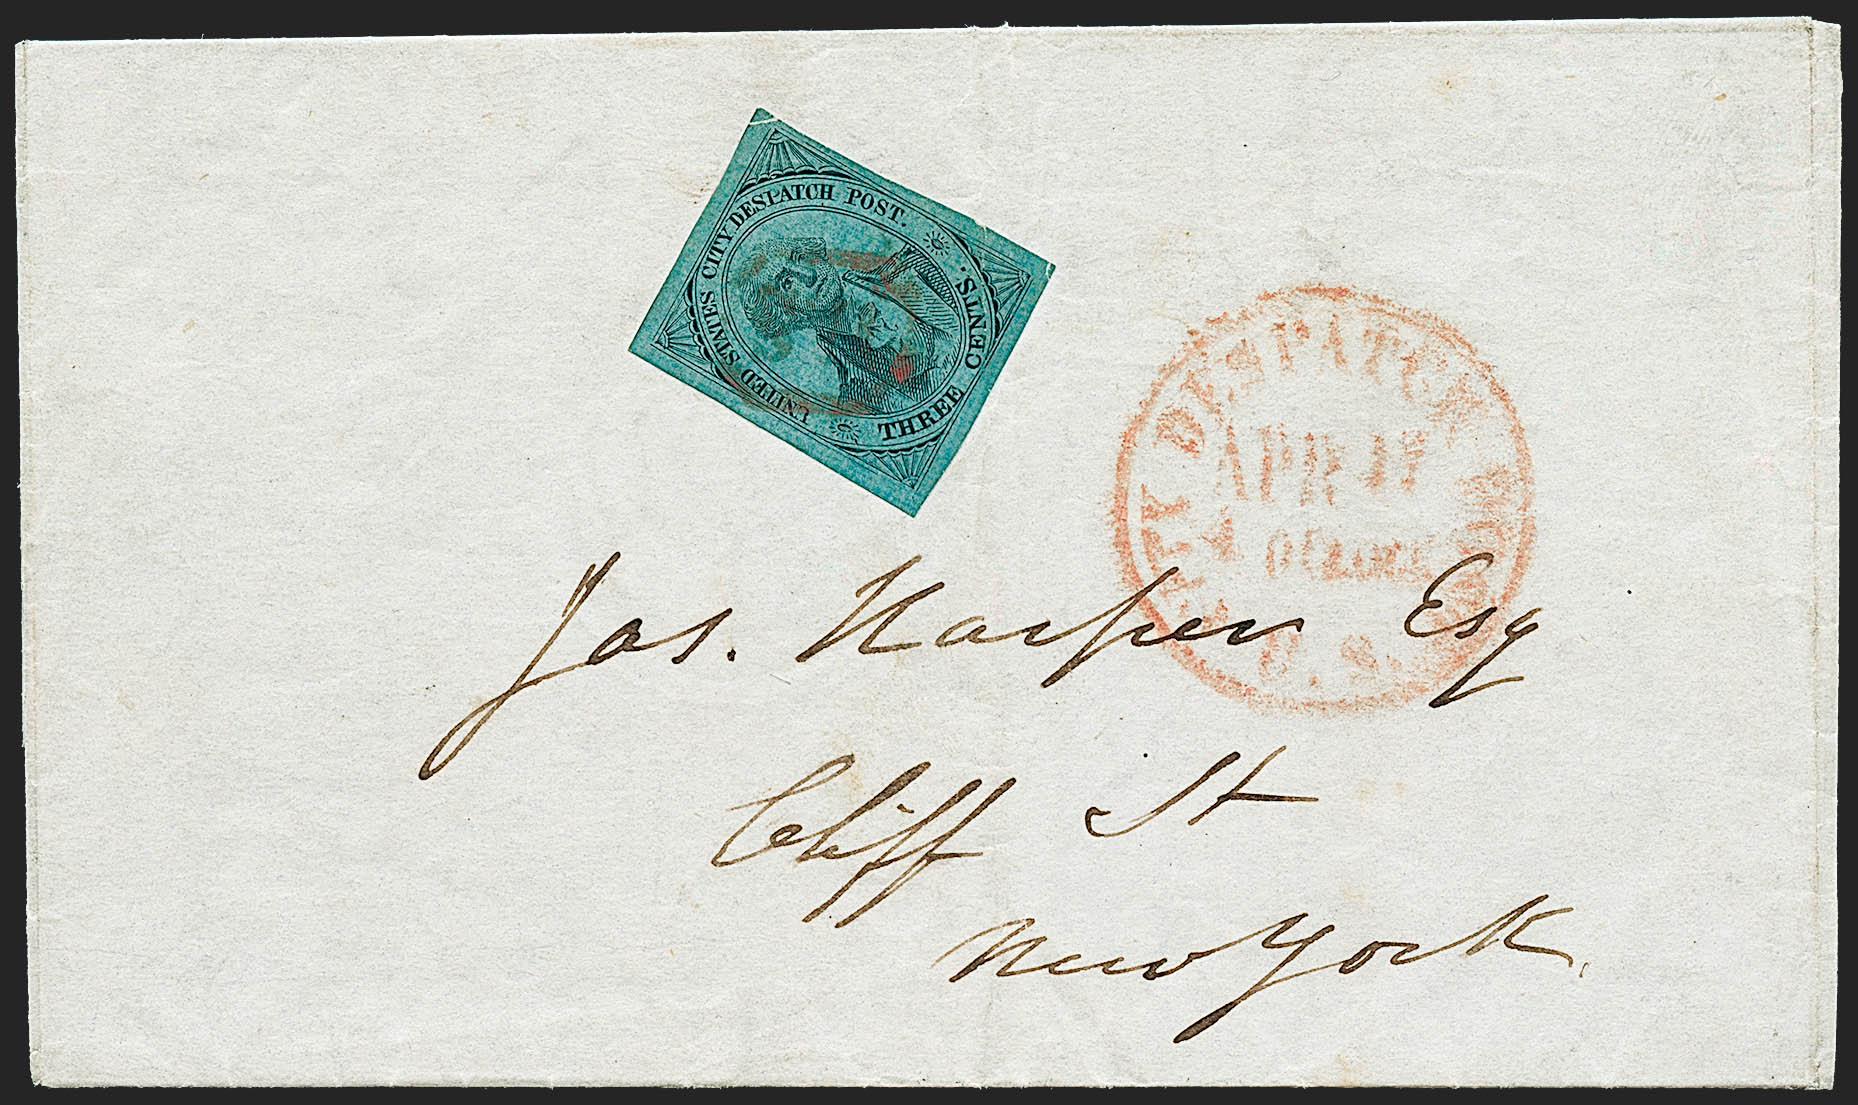 UNITED STATES CITY DESPATCH POST.
THREE CENTS.
U.S. CITY DESPATCH POST
APR 17
Jas. Harper Esq
Cliff St
New York.